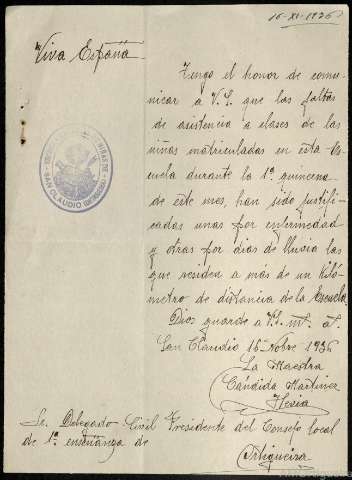 16-XI-1936
Viva España
Tengo el honor de comu-
nicar a V.S. que las faltas
de asistencia a clases de las
niñas matriculadas en esta es-
cuela durante la 1ª quincena
de este mes, han sido justifi-
cadas unas por enfermedad
y otras por dias de lluvia las
que residen a mas de un kiló-
metro de distancia de la Escuela.
Dios guarde a V.S. m. a.
San Claudio 16-Nobre 1936
La Maestra
Cándida Martinez
Sr. Delegado Civil Presidente del Consejo local
de 1ª enseñanza de
Ortigueira
NIÑAS DE
SAN CLAUDIO